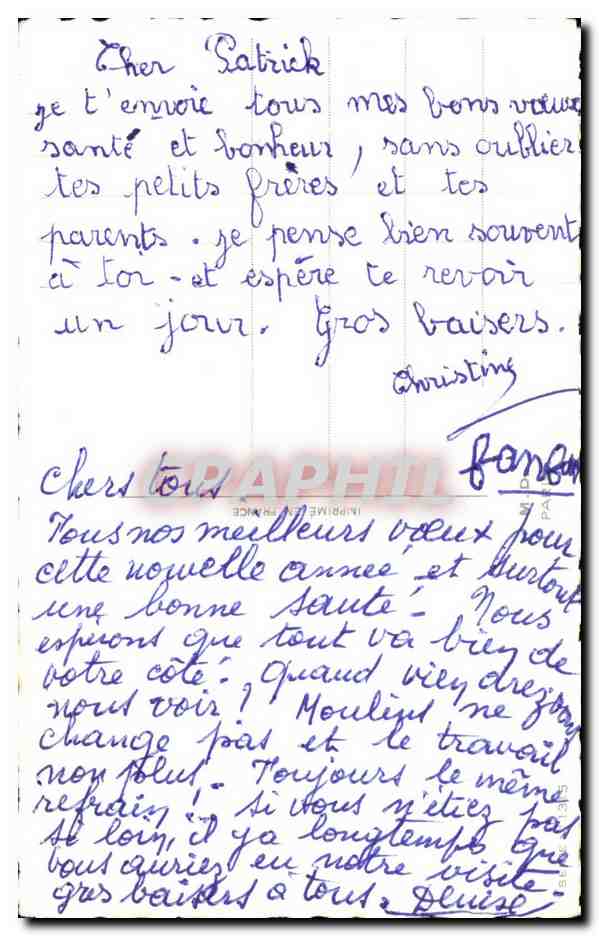 Cher Patrick
je t'envoie tous mes bons vœux
santé et bonheur, sans oublier
tes petits frères et tes
parents. je pense bien souvent
à toi - et espère te revoir
un jour. Gros baisers.
Christine
fanfan
GRAPHIL
M.D.
PAR
IMPRIMÉ EN FRANCE
Chers tous.
Tous nos meilleurs vœux pour
cette nouvelle année et surtout
une bonne santé! Nous
esperons que tout va bien de
votre côté. Quand viendrez vous
nous voir? Moulins ne
change pas et le travail
non plus. Toujours le même
refrain! si vous n'étiez pas
si loin, il y a longtemps que
vous auriez eu notre visite -
gros baisers à tous. Denise